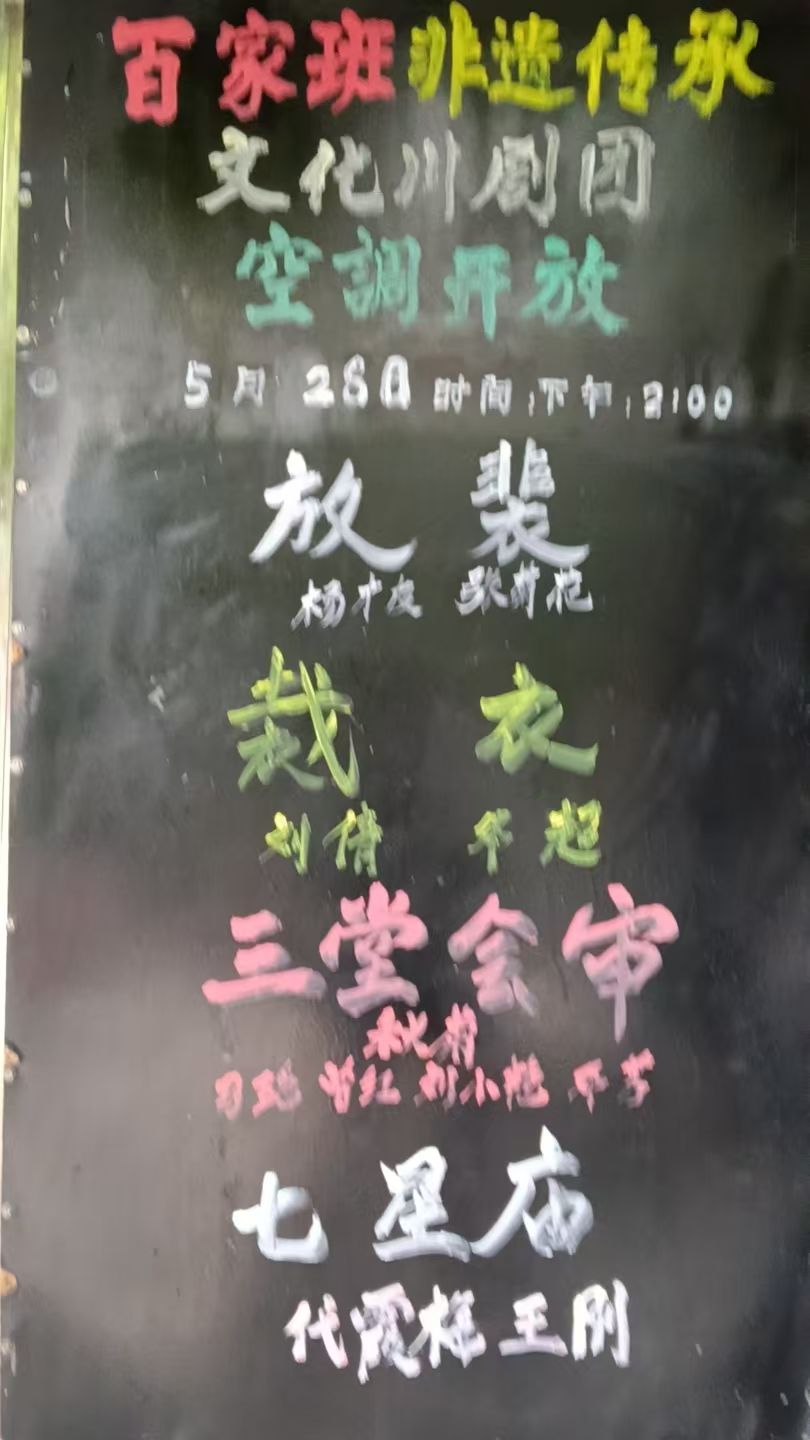 百家班非遗传承
文化川剧团
空調开放
5月28日时间:下午:2:00
放裴
杨才友 张莉苑
裁衣
刘倩 华超
三堂会审
秋菊
曾红 刘小艳
七星庙
代霞梅 王刚